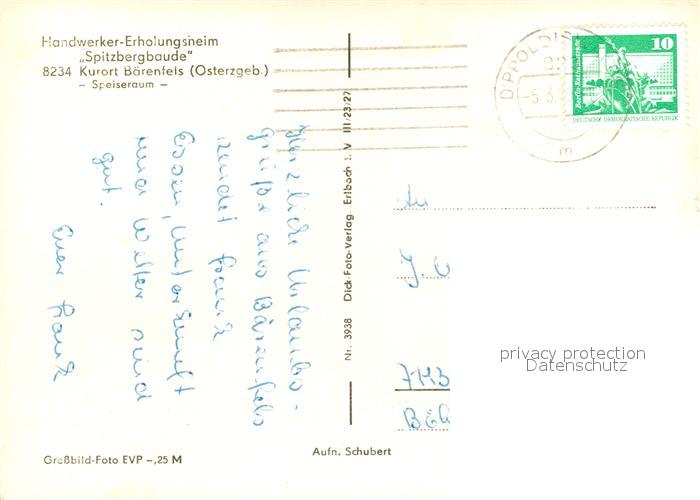 Handwerker-Erholungsheim
„Spitzbergbaude"
8234 Kurort Bärenfels (Osterzgeb.)
– Speiseraum –
Herzliche Urlaubs-
grüße aus Bärenfels
sendet Frank
Essen, Unterkunft
und Wetter sind
gut.
Euer Frank
Nr. 3938 Dick-Foto-Verlag Erlbach i. V III/23/27
DIPPOLDIS
-5.3.
m
10
Berlin, Rathausstraße
DEUTSCHE DEMOKRATISCHE REPUBLIK
An
J. U
7113
Böh
privacy protection
Datenschutz
Großbild-Foto EVP –,25 M
Aufn. Schubert